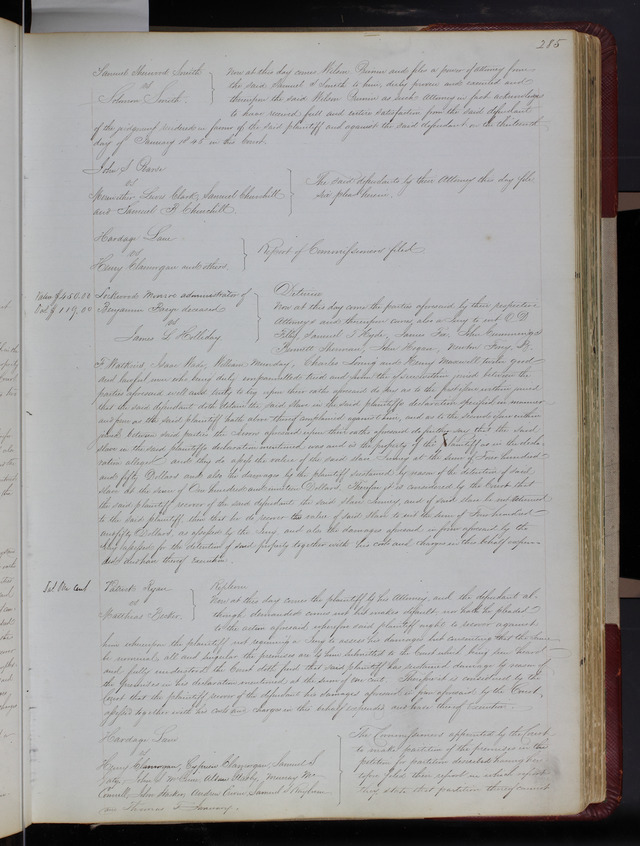 285
Samuel Harwood Smith
vs
Solomon Smith
Now at this day comes Wilson Primm and files a power of attorney from
the said Samuel H Smith to him duly proven and executed and
thereupon the said Wilson Primm as such Attorney in fact acknowledges
to have received full and entire satisfaction from the said defendant
of the judgment rendered in favor of the said plaintiff and against the said defendant on the thirteenth
day of January 1848 in this Court.
John S
vs
Meriwether Lewis Clark, Samuel Churchill
and Samuel B Churchill
The said defendants by their Attorney this day file
six pleas herein.
Hardage Lane
vs
Henry and others.
Report of Commissioners filed
Value $450.00
Dam $119.00
Lockwood administrator of
Benjamin deceased
vs
James L Holliday
Detinue
Now at this day come the parties aforesaid by their respective
Attorneys and thereupon comes also a Jury to wit O D
Filley, Samuel T Hyde, James Fox, John Cummings
Sherman, John Hogan, Newton
F Watkins, Isaac Wade, William Munday, Charles Loring and Henry Maxwell twelve good
and lawful men who being duly empannelled tried and sworn the of and upon the issues joined between the
parties aforesaid well and truly to try upon their oaths aforesaid do say as to the first issue within joined
that the said defendant doth detain the said slave in the said plaintiffs declaration specified in manner
and form as the said plaintiff hath above thereof complained against him, and as to the second issue within
joined between said parties the Jurors aforesaid upon their oaths aforesaid do further say that the said
slave in the said plaintiffs declaration mentioned was and is the property of the plaintiff as in the decla-
ration alleged and they do assess the value of the said slave at the sum of Four hundred
and fifty Dollars and also the damages by the plaintiff sustained by reason of the detention of said
slave at the sum of One hundred and nineteen Dollars. Therefore it is considered by the Court that
the said plaintiff recover of the said defendant the said slave and if said slave be not returned
to the said plaintiff then that he do recover the value of said slave to wit the sum of Four hundred
and fifty Dollars, as assessed by the Jury and also the damages aforesaid in form aforesaid by the
Jury assessed for the detention of said property together with his costs and charges in this behalf expen-
ded and have thereof execution.
Jud One cent
Patrick Ryan
vs
Matthias
Replevin
Now at this day comes the plaintiff by his Attorney and the defendant al-
though demanded comes not but makes default nor hath he pleaded
to the action aforesaid wherefore said plaintiff ought to recover against
him whereupon the plaintiff not requiring a Jury to assess his damages but consenting that the same
be nominal, all and singular the premises are by him submitted to the Court which being seen heard
and fully understood the Court doth find that said plaintiff has sustained damage by reason of
the premises in his declaration mentioned at the sum of one cent. Therefore it is considered by the
Court that the plaintiff recover of the defendant his damages aforesaid in form aforesaid by the Court
assessed together with his costs and charges in this behalf expended and have thereof execution.
Hardage Lane
vs
Henry Samuel S
John Murray Mc
John Andrew Samuel
Thomas T January
The Commissioners appointed by the Court
to make partition of the premises in the
petition for partition described having here-
tofore filed their report in which report
they state that partition thereof cannot